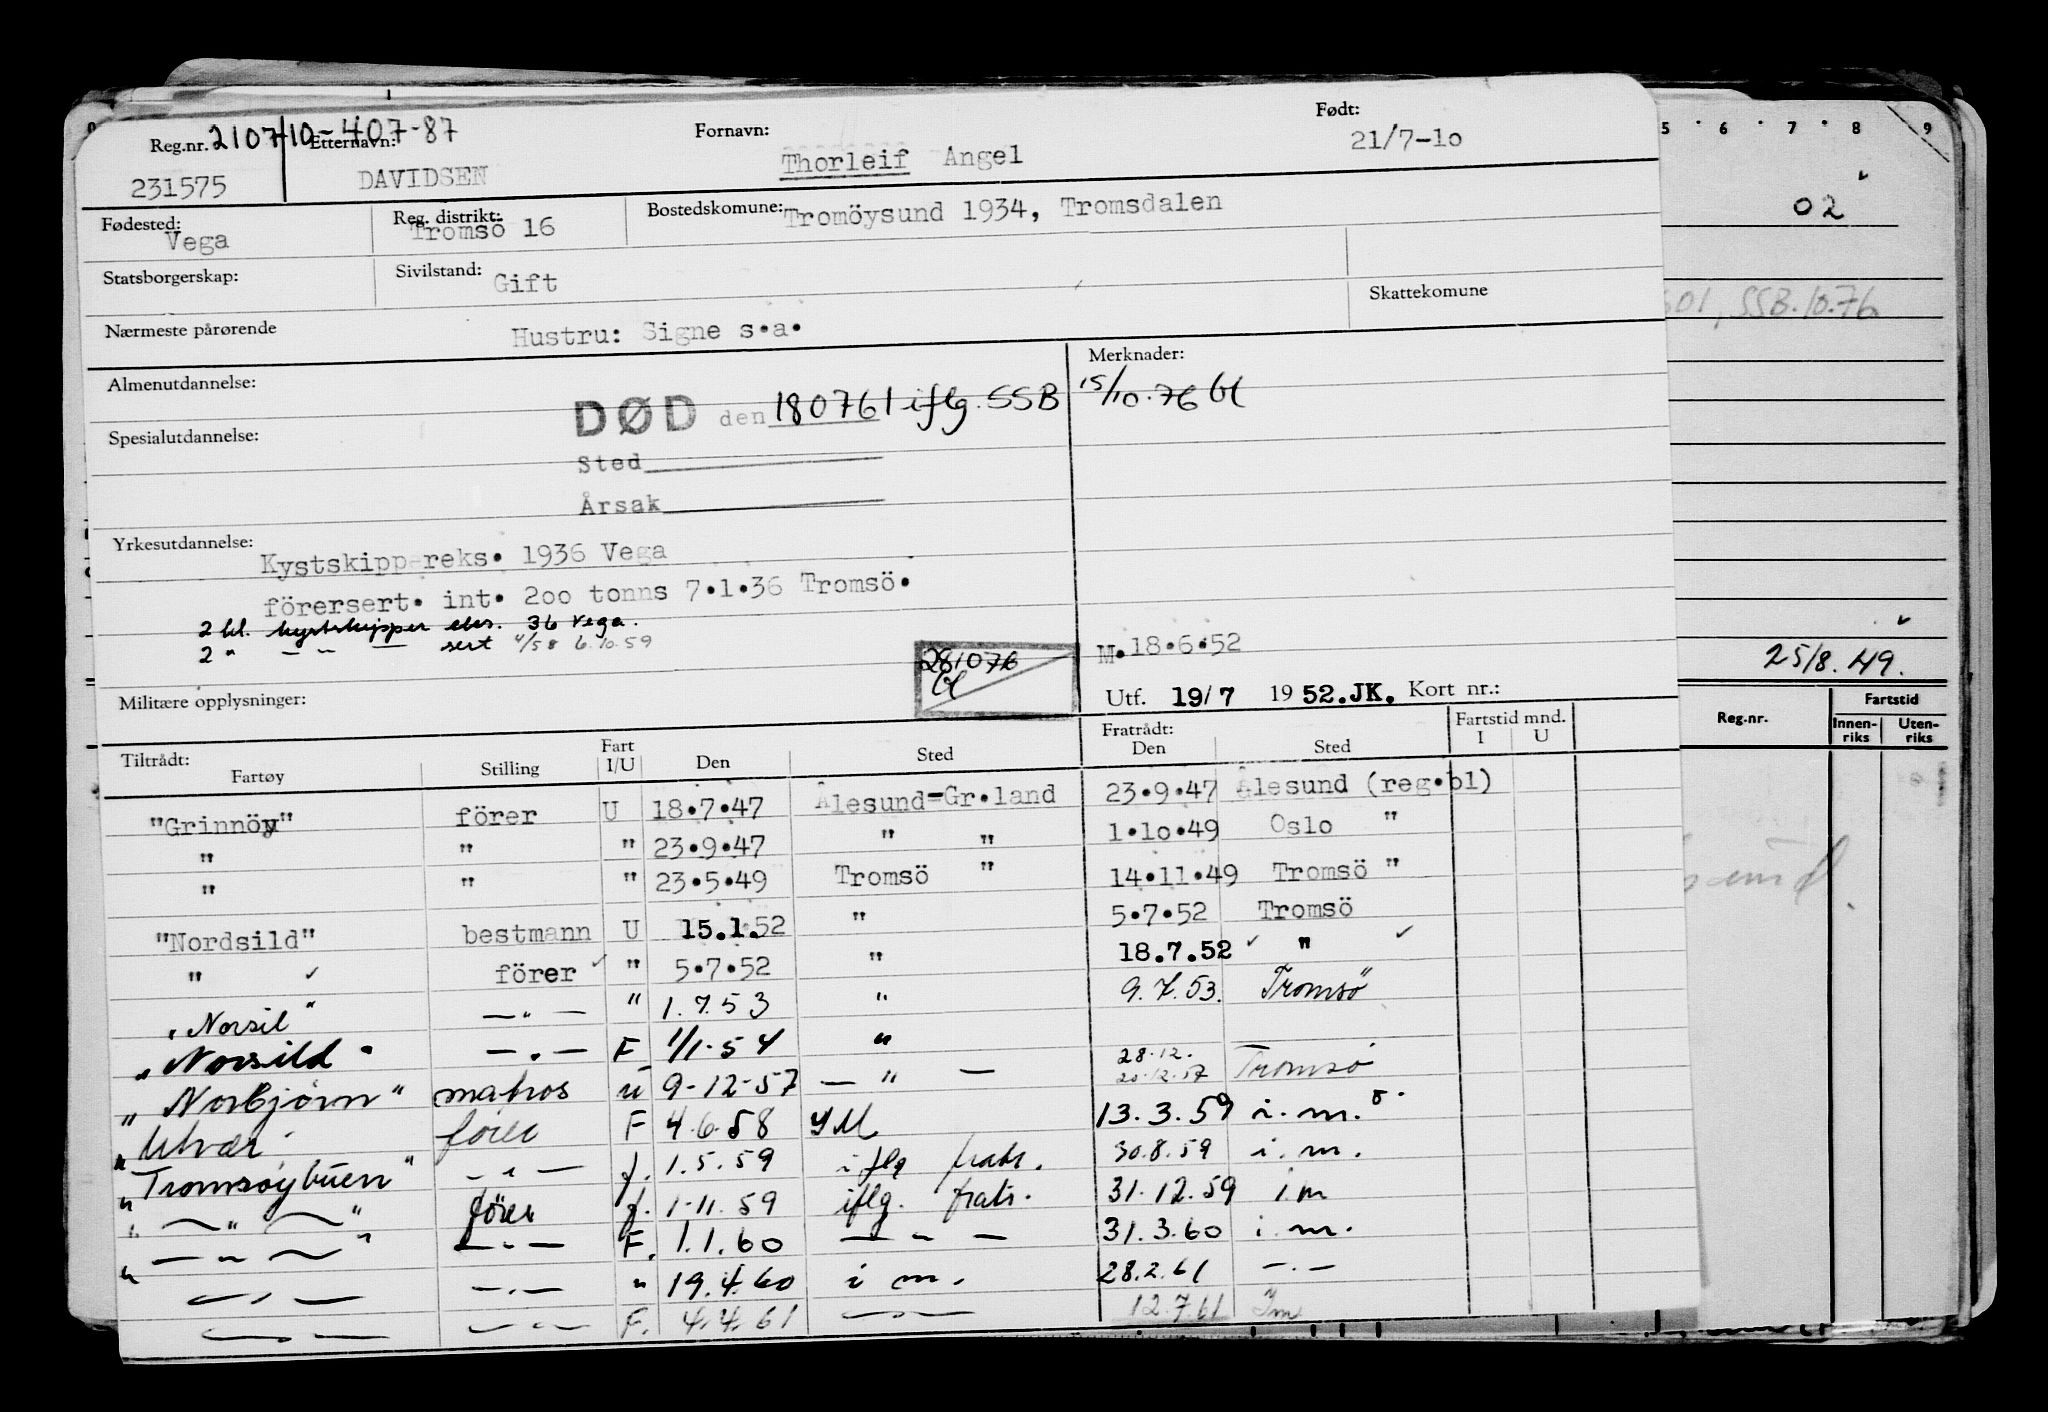 Reg.nr. 210710-407-87 Etternavn: Fornavn: Født:
231575 DAVIDSEN Thorleif Angel 21/7-1o
Fødested: Vega Reg. distrikt: Tromsö 16 Bostedskomune: Tromöysund 1934, Tromsdalen
Statsborgerskap: Sivilstand: Gift Skattekomune
Nærmeste pårørende Hustru: Signe s.a.
Almenutdannelse: Merknader:
DØD den 180761 iflg. SSB 15/10.76 bl
Spesialutdannelse:
Sted
Årsak
Yrkesutdannelse: Kystskippereks. 1936 Vega
förersert. int. 2oo tonns 7.1.36 Tromsö.
2 kl. kystskipper eks. 36 Vega.
2 " — " — sert 4/58 6.10.59
281076 bl
M. 18.6.52
Militære opplysninger: Utf. 19/7 1952. JK. Kort nr.:
Tiltrådt: Fartøy Stilling Fart I/U Den Sted Fratrådt: Den Sted Fartstid mnd. I U
"Grinnöy" förer U 18.7.47 Ålesund-Gr.land 23.9.47 Ålesund (reg.bl)
" " " 23.9.47 " " 1.1o.49 Oslo "
" " " 23.5.49 Tromsö " 14.11.49 Tromsö "
"Nordsild" bestmann U 15.1.52 " 5.7.52 Tromsö
" förer " 5.7.52 " 18.7.52 "
"Norsil" — " — " 1.7.53 " 9.7.53. Tromsö
"Norsild" — " — F 1/1-54 "
"Norbjørn" matros u 9-12-57 — " — 28.12. 20.12.57 Tromsø
"Utvær" fører F 4.6.58 YM 13.3.59 i.m. 8.
"Tromsøybuen" — " — f. 1.5.59 iflg fratr. 30.8.59 i.m.
" — " — " fören f. 1-11.59 iflg. fratr. 31.12.59 i m
" — " — " — " — F. 1.1.60 — " — 31.3.60 i.m.
" — " — — " — " 19.4.60 i m. 28.2.61 — " —
— " — — " — F. 4.4.61 — " — 12.7.61 Im
5 6 7 8 9
02
601, SSB.10.76
25/8.49.
Reg.nr. Fartstid
Innenriks Utenriks